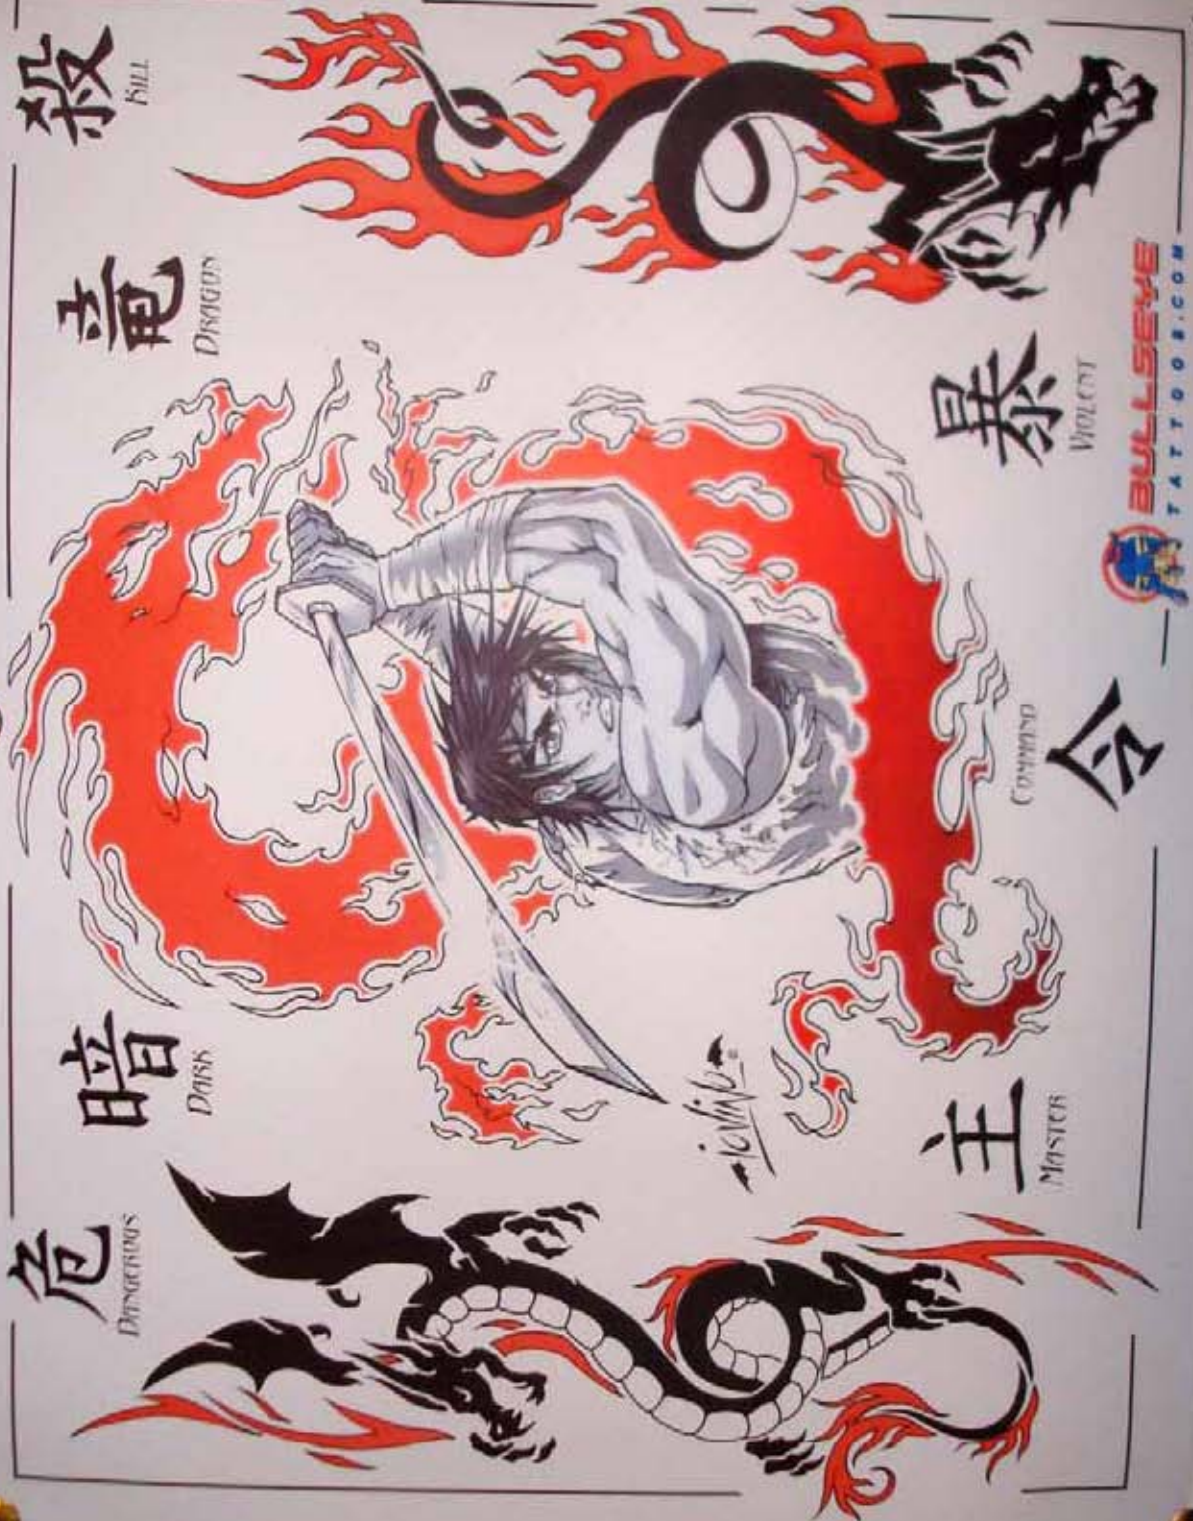 危
DANGEROUS
暗
DARK
竜
DRAGON
殺
KILL
主
MASTER
令
COMMAND
暴
VIOLENT
BULLSEYE
TATTOOS.COM